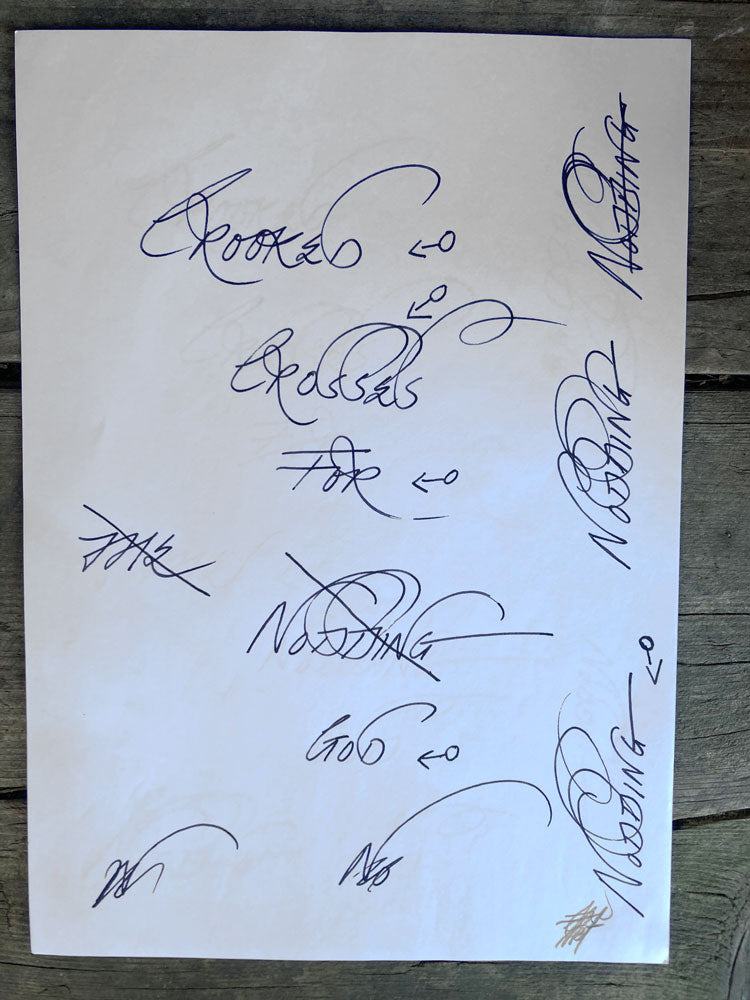 CROOKED
CROSSES
FOR
THE
NODDING
GOD
NODDING
NODDING
NODDING